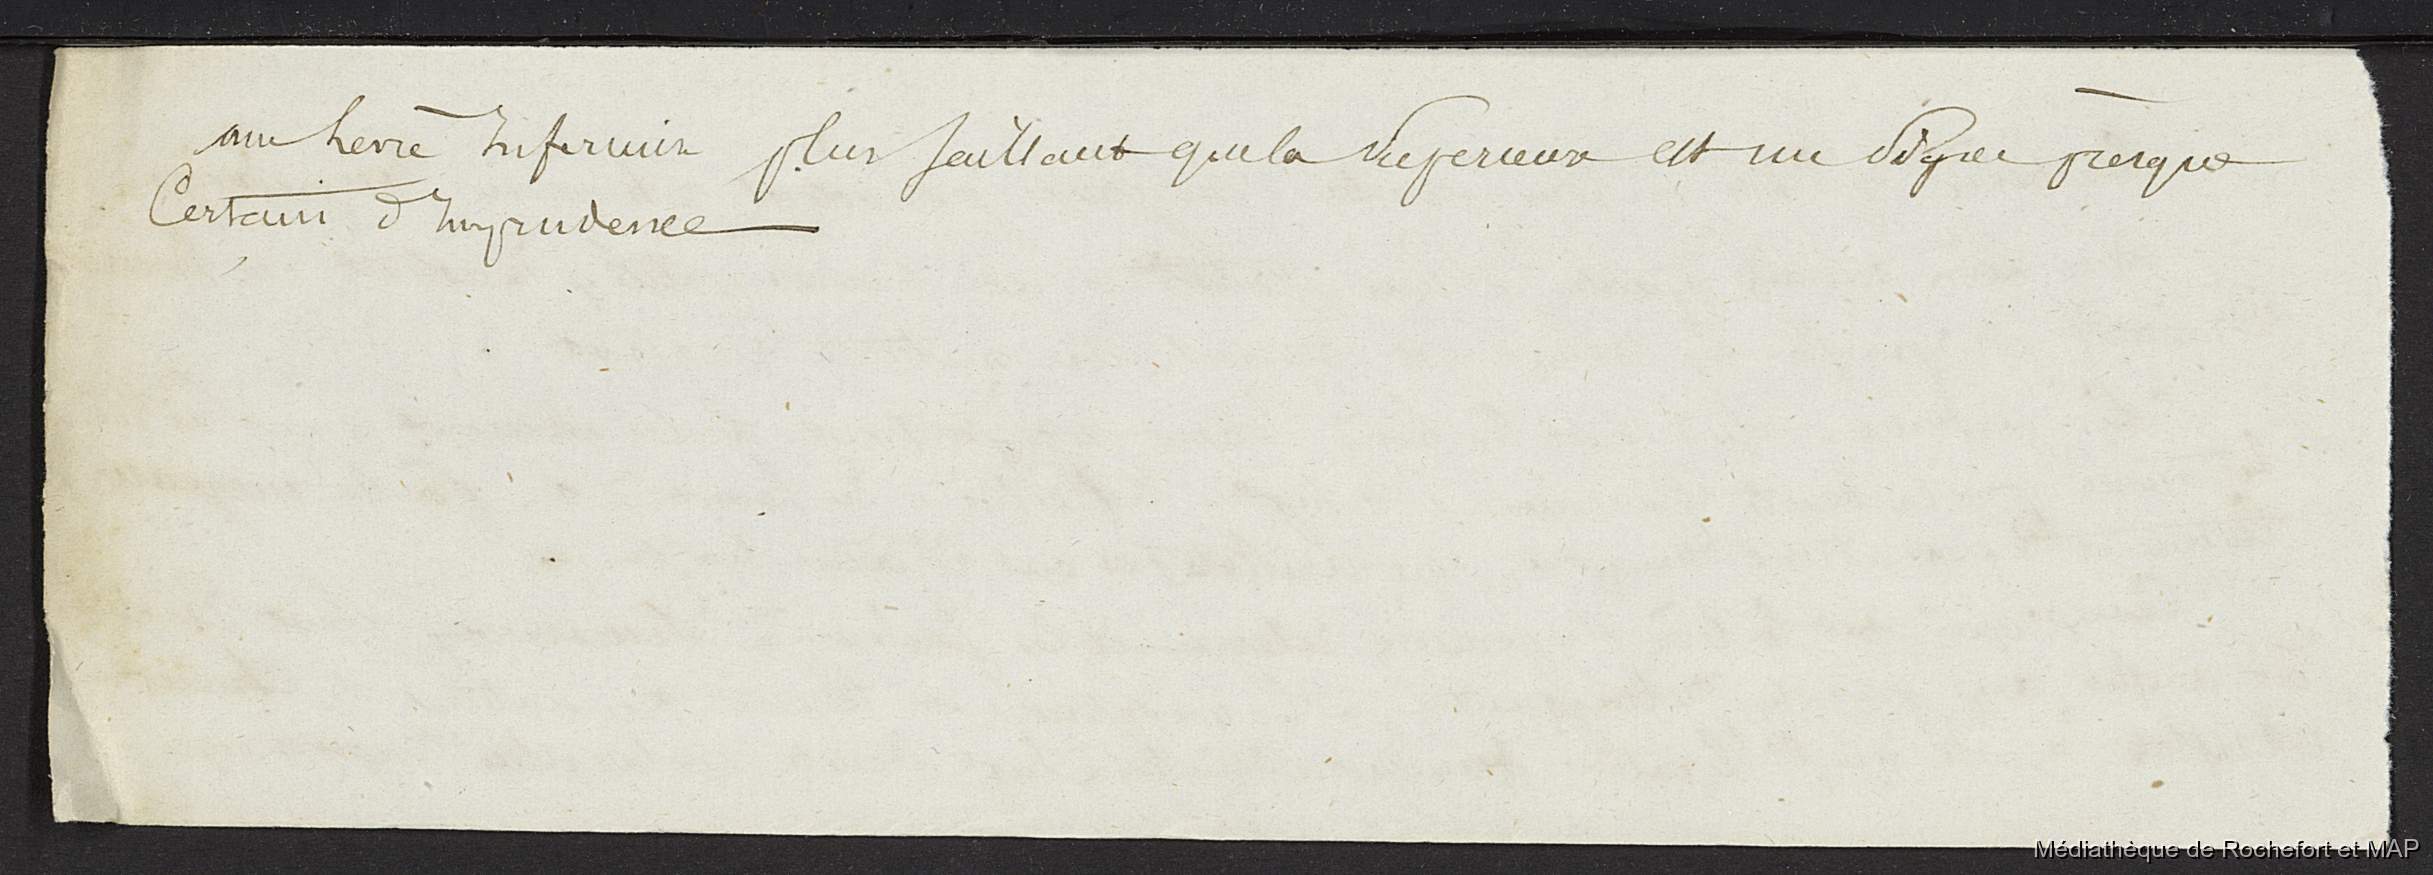 une levre Inferieure plus saillant que la superieure est un signe presque
Certain d'Imprudence
Médiathèque de Rochefort et MAP